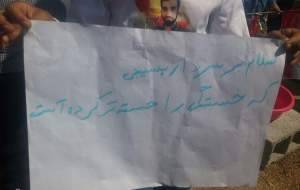 سلام بر سردار بسیجی
که خستگی را خسته کرده است